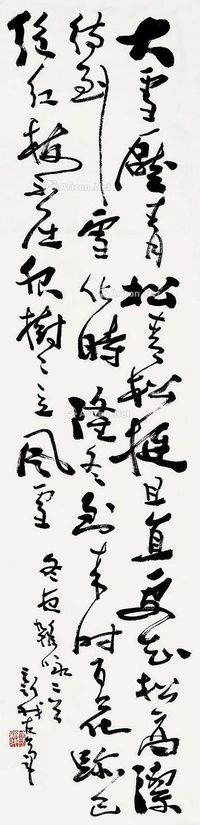 大雪壓青松青松挺且直要知松高潔
待到雪化時隆冬到来时百花跡已
絕紅梅不屈服樹〻立風雪
冬夜雜咏二首
新我左筆